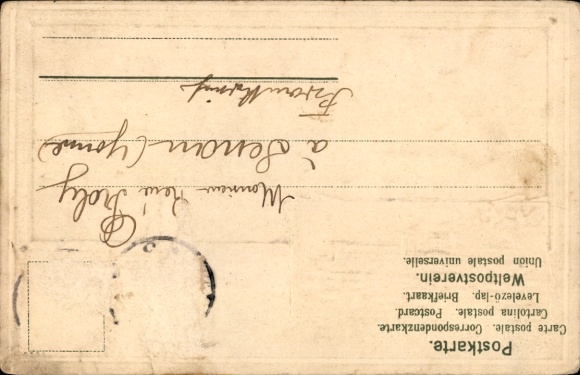 Postkarte.
Carte postale. Correspondenzkarte.
Cartolina postale. Postcard.
Levelező-lap. Briefkaart.
Weltpostverein.
Union postale universelle.
Monsieur René
à Senan (Yonne)